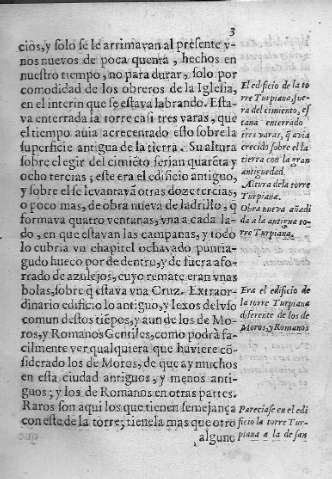 3
cios, y solo se le arrimavan al presente v-
nos nuevos de poca quenta, hechos en
nuestro tiempo, no para durar, solo por
comodidad de los obreros de la Iglesia,
en el interin que se estava labrando. Esta-
va enterrada la torre casi tres varas, que
el tiempo auia acrecentado esso sobre la
superficie antigua de la tierra. Su altura
sobre el egir del cimiẽto serjan quarẽta y
ocho tercias; este era el edificio antiguo,
y sobre el se levantavã otras doze tercias,
o poco mas, de obra nueva de ladrillo, q̃
formava quatro ventanas, vna a cada la-
do, en que estavan las campanas, y todo
lo cubria vn chapitel ochavado puntia-
gudo hueco por de dentro, y de fuera afo-
rrado de azulejos, cuyo remate eran vnas
bolas, sobre q̃ estava vna Cruz. Extraor-
dinario edificio lo antiguo, y lexos del vso
comun destos tiẽpos, y aun de los de Mo-
ros, y Romanos Gentiles, como podrà fa-
cilmente ver qualquiera que huviere cõ-
siderado los de Moros, de que ay muchos
en esta ciudad antiguos, y menos anti-
guos; y los de Romanos en otras partes.
Raros son aqui los que tienen semejança
con este de la torre; tienela mas que otro
alguno
El edificio de la to
rre Turpiana, fue-
ra del cimiento, es
tana enterrado
tres varas, q̃ avia
crecido sobre el la
tierra con la gran
antiguedad.
Altura dela torre
Turpiana.
Obra nueva añadi
da a la antigua to-
rre Turpiana.
Era el edificio de
la torre Turpiana
diferente de los de
Moros, y Romanos
Pareciase en el edi
ficio la torre Tur-
piana a la de san